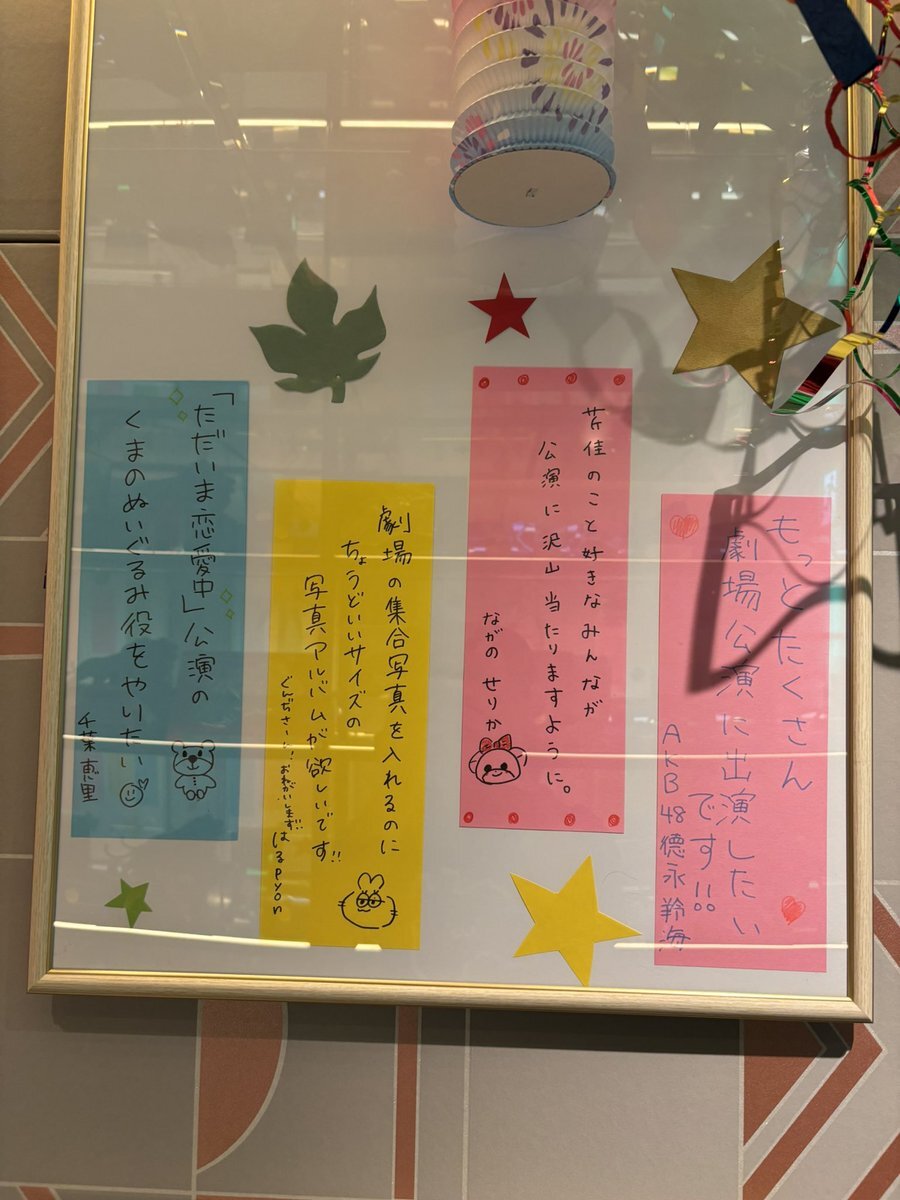 もっとたくさん
劇場公演に出演したい
です!!
AKB48 徳永羚海
芹佳のこと好きなみんなが
公演に沢山当たりますように。
ながの せりか
劇場の集合写真を入れるのに
ちょうどいいサイズの
写真アルバムが欲しいです!!
ぐんぢさーん!おねがいします!!
はるpyon
「ただいま恋愛中」公演の
くまのぬいぐるみ役をやりたい
千葉恵里